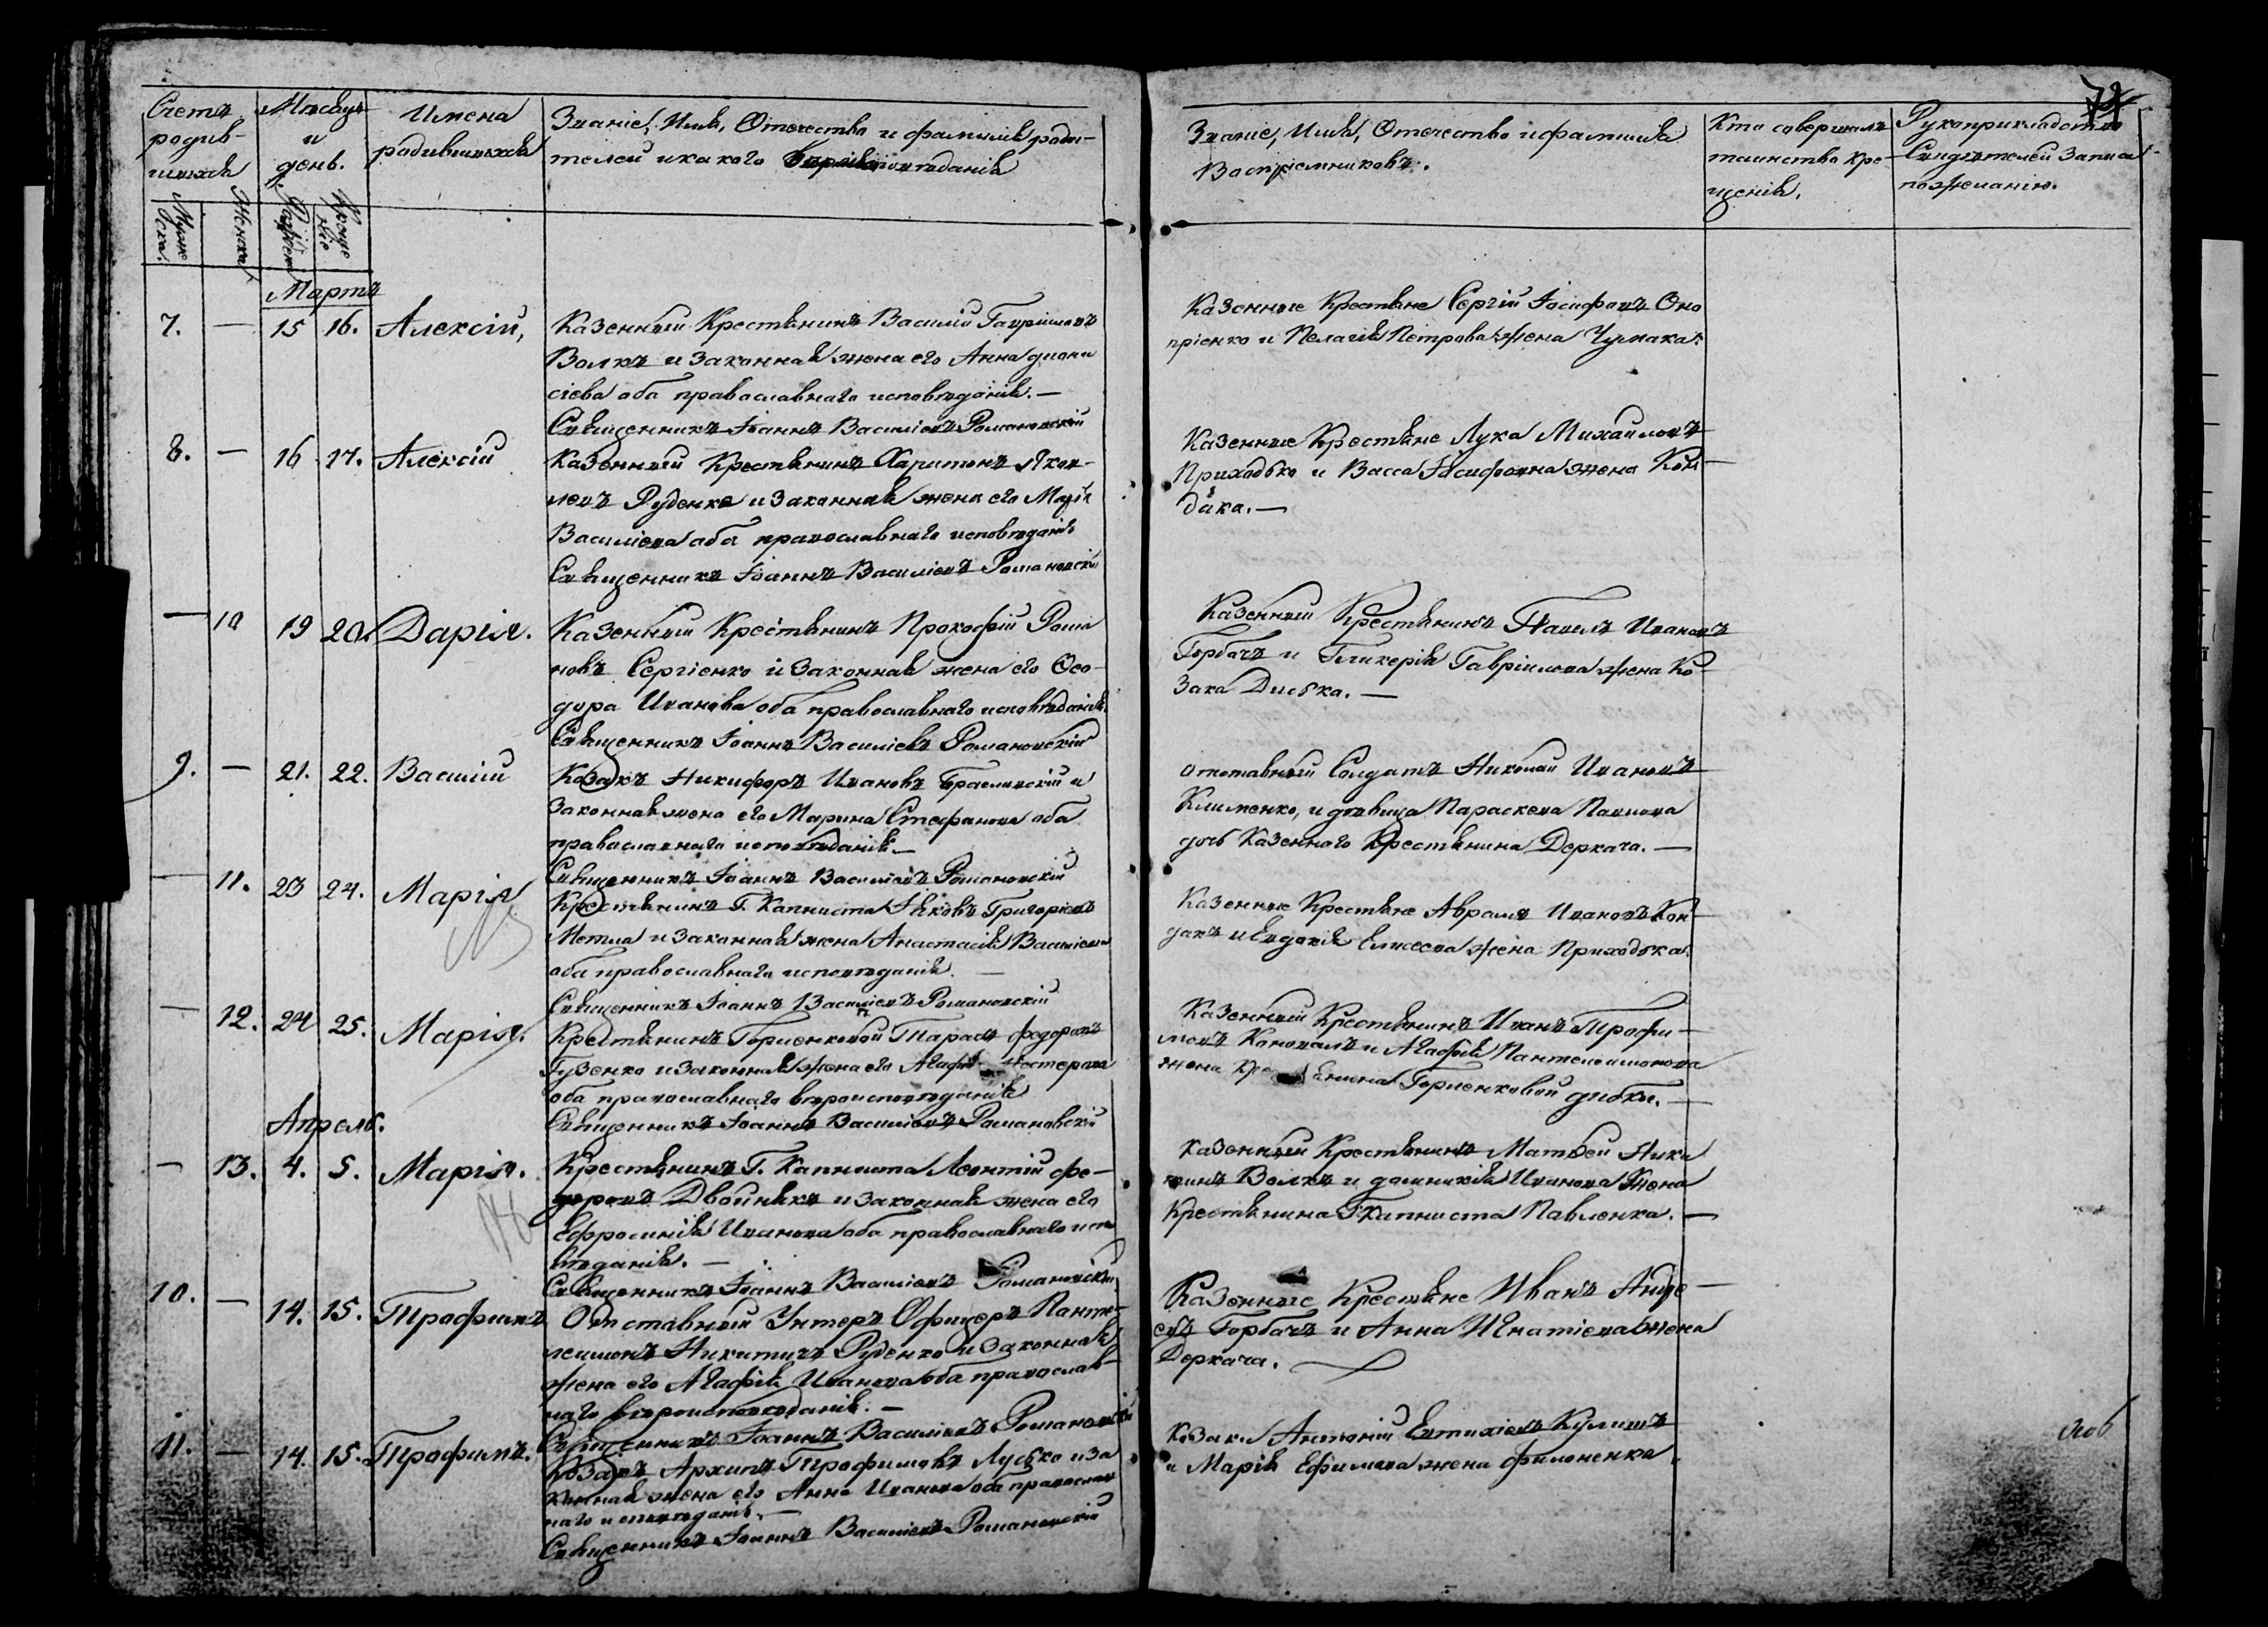 72
Счетъ родив-шихся
Мѣсяцъ и день.
Имена родившихся
Званіе, Имя, Отечество и фамилія роди-
телей и какого вѣроисповѣданія
Званіе, Имя, Отечество и фамилія
Воспріемниковъ.
Кто совершалъ
таинство кре-
щенія.
Рукоприкладство
Свидѣтелей записи
по желанію.
Мужеска.
Женска
Рожден
Крещеніе
Мартъ
7. — 15 16. Алексій,
Казенный Крестянинъ Василій Гавріиловъ
Волкъ и законная жена его Анна Діони
сіева оба православнаго исповѣданія. —
Священникъ Іоаннъ Василіевъ Романовскій
Казенные Крестяне Сергій Іосифовъ Оно
пріенко и Пелагія Петрова жена Чумака.
8. — 16 17. Алексій
Казенный Крестянинъ Харитонъ Яков-
левъ Руденко и законная жена его Марія
Василіева оба православнаго исповѣданія
Священникъ Іоаннъ Василіевъ Романовскій
Казенные Крестяне Лука Михаиловъ
Приходько и Васса Іосифовна жена Кон-
дака. —
— 10 19 20. Дарія.
Казенный Крестянинъ Прокофій Рома
новъ Сергіенко и законная жена его Ѳео-
дора Иванова оба православнаго исповѣданія.
Священникъ Іоаннъ Василіевъ Романовскій
Казенный Крестянинъ Павелъ Ивановъ
Горбачъ и Гликерія Гавріилова жена Ко-
зака Дибка. —
9. — 21. 22. Василій
Козакъ Никифоръ Ивановъ Браславскій и
Законная жена его Марина Стефанова оба
православнаго исповѣданія. —
Священникъ Іоаннъ Василіевъ Романовскій
отставный Солдатъ Николай Ивановъ
Клименко, и дѣвица Параскева Павлова
дочь Казеннаго Крестянина Деркача. —
— 11. 23 24. Марія
Крестянинъ Г. Капниста Іяковъ Григоріевъ
Метла и законная жена Анастасія Василіева
оба православнаго исповѣданія. —
Священникъ Іоаннъ Василіевъ Романовскій
Казенные Крестяне Аврамъ Ивановъ Кон-
дакъ и Евдокія Елисеева жена Приходька.
— 12. 24 25. Марія.
Крестянинъ Горленковой Тарасъ Федоровъ
Гузенко и законная жена его Агафія Нестерова
оба православнаго вѣроисповѣданія
Священникъ Іоаннъ Василіевъ Романовскій
Казенный Крестянинъ Иванъ Трофи-
мовъ Коновалъ и Агафія Пантелеимонова
жена Крестянина Горленковой Дибки. —
Апрель.
— 13. 4. 5. Марія.
Крестянинъ Г. Капниста Леонтій Фе-
доровъ Двойнякъ и законная жена его
Ефросинія Иванова оба православнаго испо
вѣданія. —
Священникъ Іоаннъ Василіевъ Романовскій
Казенный Крестянинъ Матвей Ники
тинъ Волкъ и Домникія Иванова жена
Крестянина Г. Капниста Павленка. —
10. — 14. 15. Трофимъ
Отставный Унтеръ Офицеръ Панте-
леимонъ Никитичъ Руденко и законная
жена его Агафія Иванова оба православ-
наго вѣроисповѣданія. —
Священникъ Іоаннъ Василіевъ Романовскій
Казенные Крестяне Иванъ Андре-
евъ Горбачъ и Анна Игнатіева жена
Деркача.
11. — 14. 15. Трофимъ.
Козакъ Архипъ Трофимовъ Лусько и за
конная жена его Анна Иванова оба православ
наго исповѣданія. —
Священникъ Іоаннъ Василіевъ Романовскій
Козаки Антоній Евтихіевъ Кулишъ
и Марія Ефимова жена Филоненка.